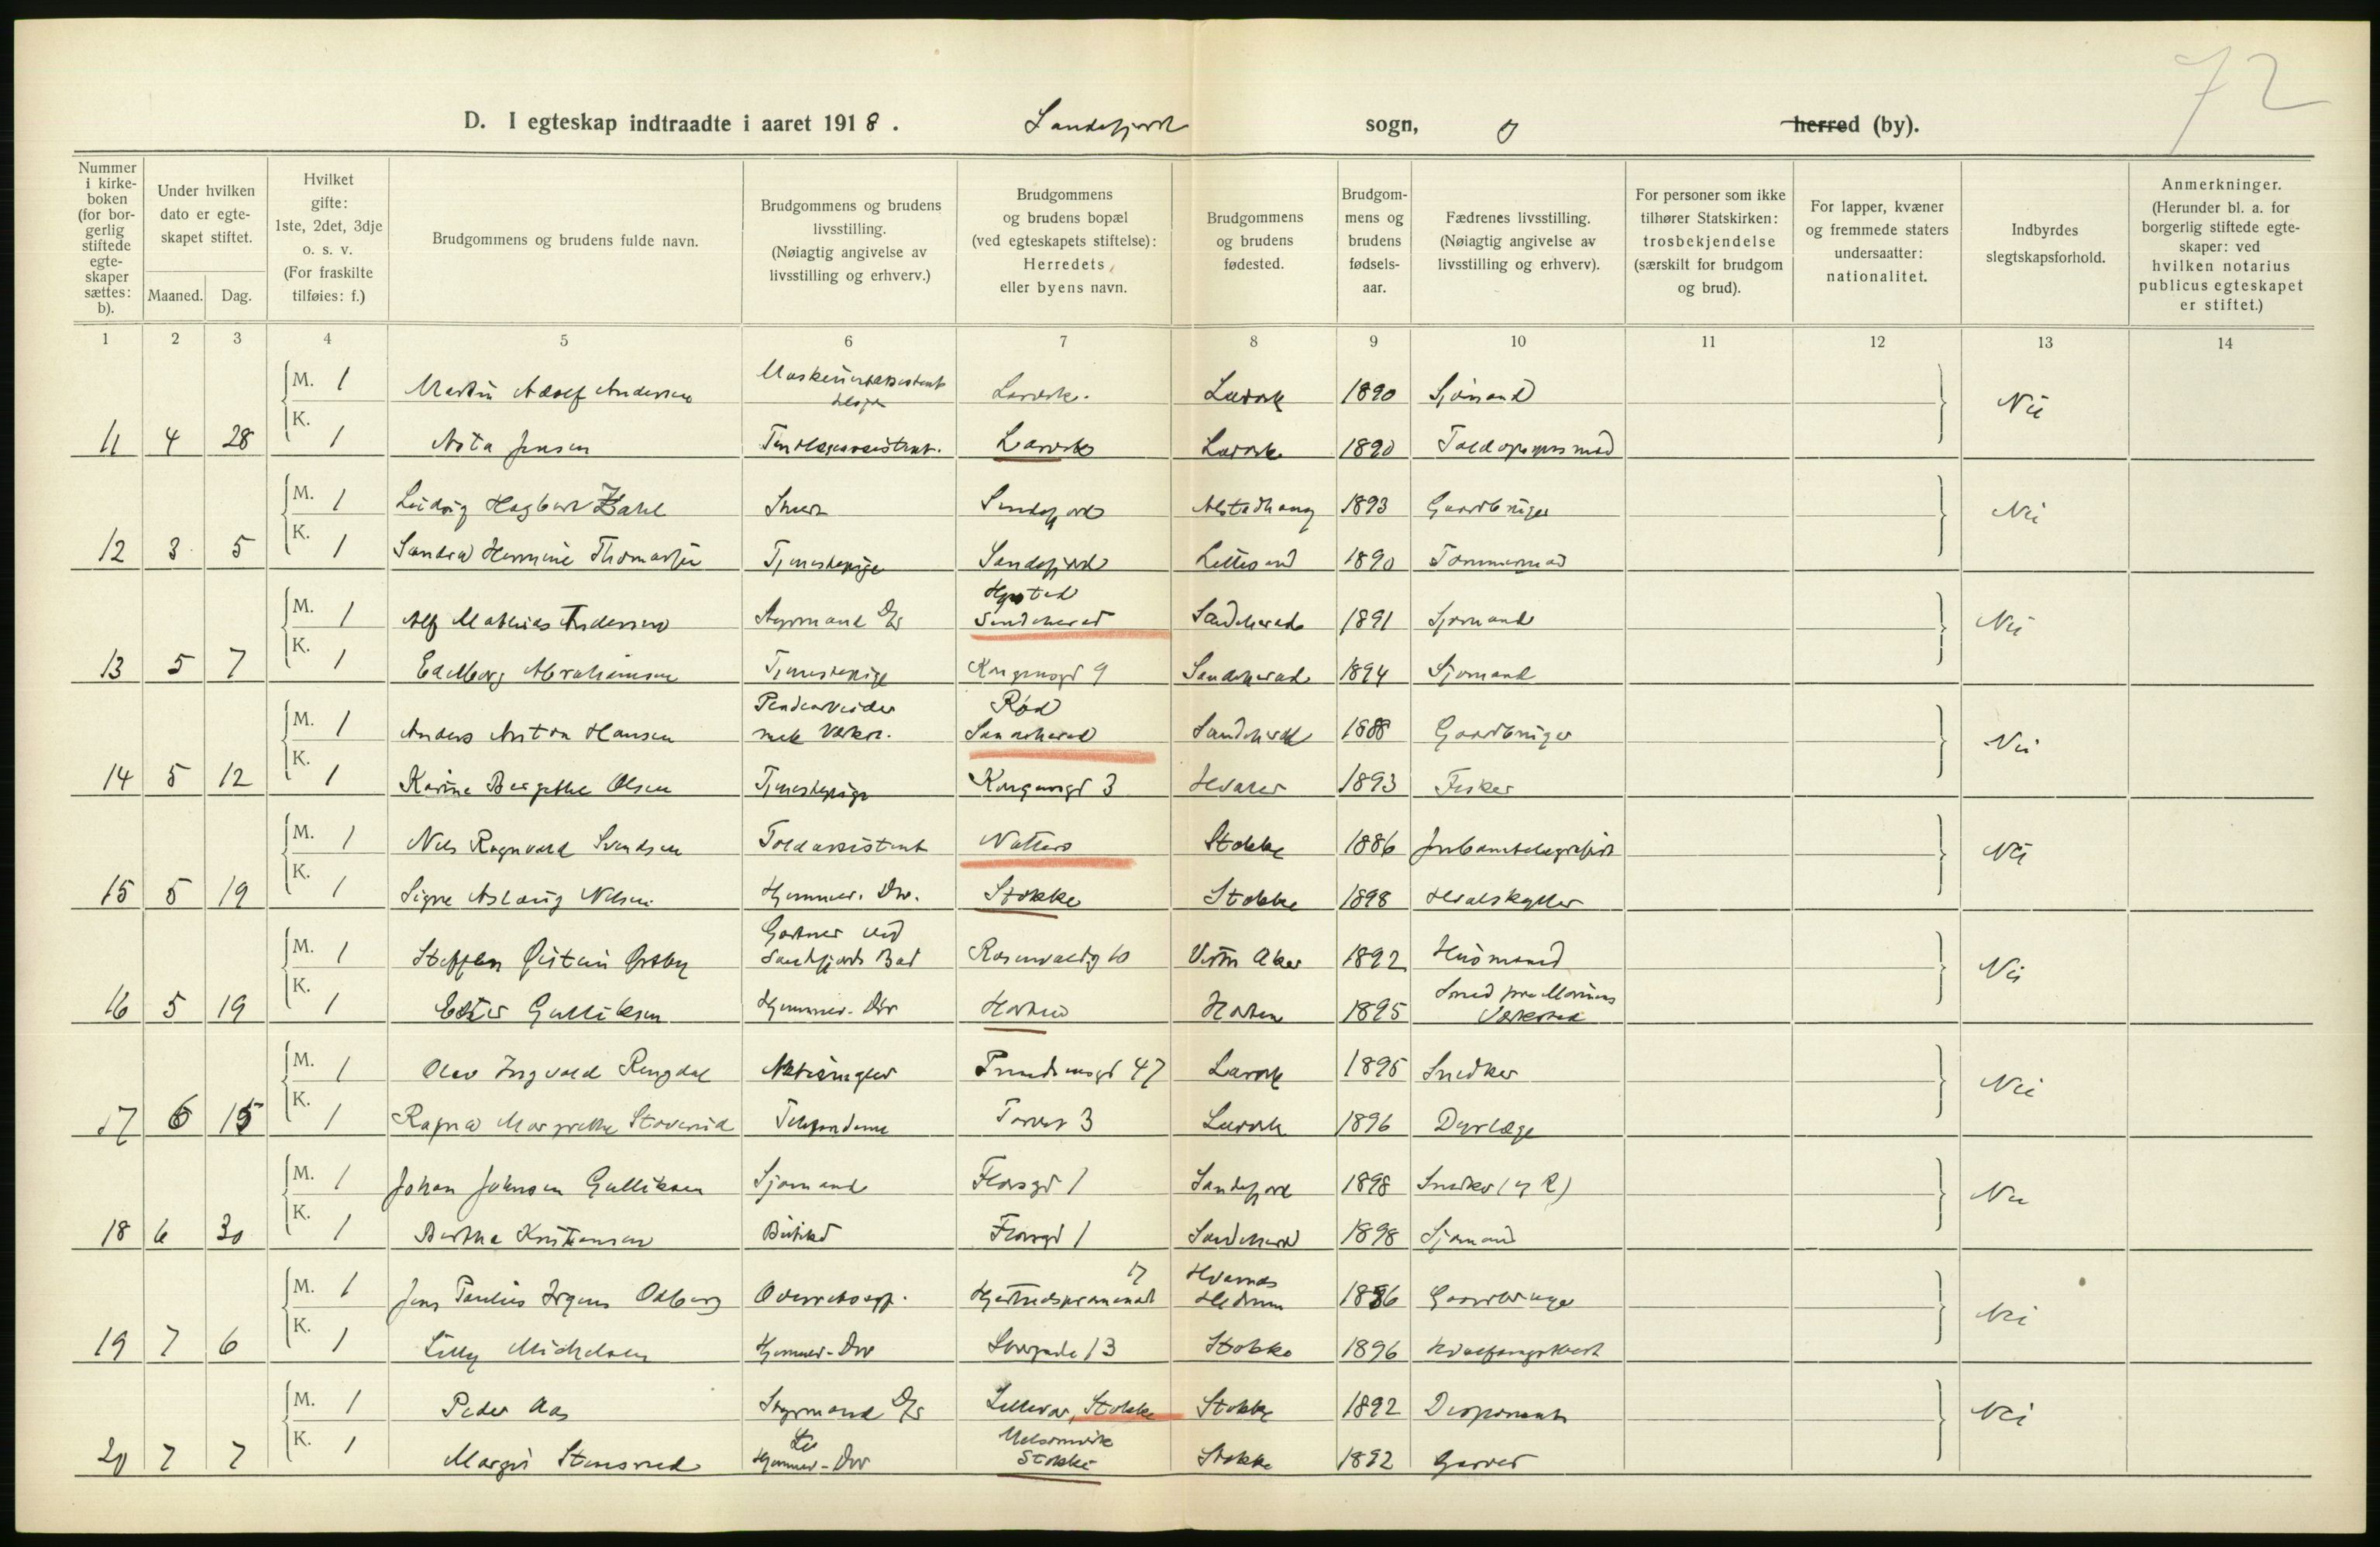 72
D. I egteskap indtraadte i aaret 1918. Sandefjord sogn, herred (by).
Nummer i kirkeboken (for borgerlig stiftede egteskaper sættes: b).
Under hvilken dato er egteskapet stiftet.
Maaned. Dag.
Hvilket gifte: 1ste, 2det, 3dje o. s. v. (For fraskilte tilføies: f.)
Brudgommens og brudens fulde navn.
Brudgommens og brudens livsstilling. (Nøiagtig angivelse av livsstilling og erhverv.)
Brudgommens og brudens bopæl (ved egteskapets stiftelse): Herredets eller byens navn.
Brudgommens og brudens fødested.
Brudgommens og brudens fødselsaar.
Fædrenes livsstilling. (Nøiagtig angivelse av livsstilling og erhverv).
For personer som ikke tilhører Statskirken: trosbekjendelse (særskilt for brudgom og brud).
For lapper, kvæner og fremmede staters undersaatter: nationalitet.
Indbyrdes slegtskapsforhold.
Anmerkninger. (Herunder bl. a. for borgerlig stiftede egteskaper: ved hvilken notarius publicus egteskapet er stiftet.)
1 2 3 4 5 6 7 8 9 10 11 12 13 14
M. 1 Martin Adolf Andersen Larvik. Larvik 1890 Sjømand Nei
11 4 28 K. 1 Asta Jensen Larvik Larvik 1890
M. 1 Ludvig Hagbart Dahl Smed Sandefjord Alstadhaug 1893 Gaardbruger Nei
12 3 5 K. 1 Sandra Hermine Thomassen Tjenestepige Sandefjord Lillesand 1890 Tømmermand
M. 1 Alf Mathias Andersen Styrmand D/S Sandeherad Sandeherad 1891 Sjømand Nei
13 5 7 K. 1 Edelborg Abrahamsen Tjenestepige Kongensgd 9 Sandeherad 1894 Sjømand
M. 1 Anders Anton Hansen mek Værks. Rød Sandeherad Sandeherad 1888 Gaardbruger Nei
14 5 12 K. 1 Karine Bergithe Olsen Tjenestepige Kongensgd 3 Hvaler 1893 Fisker
M. 1 Nils Ragnvald Svendsen Toldassistent Nøtterø Stokke 1886 Nei
15 5 19 K. 1 Signe Aslaug Nilsen Hjemmev. Dtr. Stokke Stokke 1898 Hvalskytter
M. 1 Steffen Øistein Østby Gartner ved Sandefjords Bad Rosenvoldsg 10 Vestre Aker 1892 Husmand Nei
16 5 19 K. 1 Ester Gulliksen Hjemmev. Dtr Horten Horten 1895 Smed paa Marinens Værksted
M. 1 Olav Ingvald Ringdal Larvik 1895 Snedker Nei
17 6 15 K. 1 Ragna Margrethe Staverud Telefondame Torvet 3 Larvik 1896 Dyrlæge
M. 1 Johan Johnsen Gulliksen Sjømand Florsgd 1 Sandefjord 1898 Nei
18 6 30 K. 1 Berthe Kristiansen Florsgd 1 Sandeherad 1898 Sjømand
M. 1 Jens Paulius Jrgens Odberg Overretssagf. Hjertnespromenade 17 Hvarnes Hedrum 1886 Gaardbruger Nei
19 7 6 K. 1 Lilly Michelsen Hjemmev-Dtr Storgade 13 Stokke 1896
M. 1 Peder Aas Styrmand D/S Stokke Stokke 1892 Disponent Nei
20 7 7 K. 1 Margit Stensrud Hjemmev-Dtr Melsomvik Stokke Stokke 1892 Garver